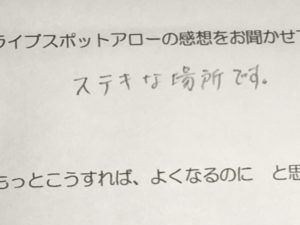 ライブスポットアローの感想をお聞かせ
ステキな場所です。
もっとこうすれば、よくなるのに と思